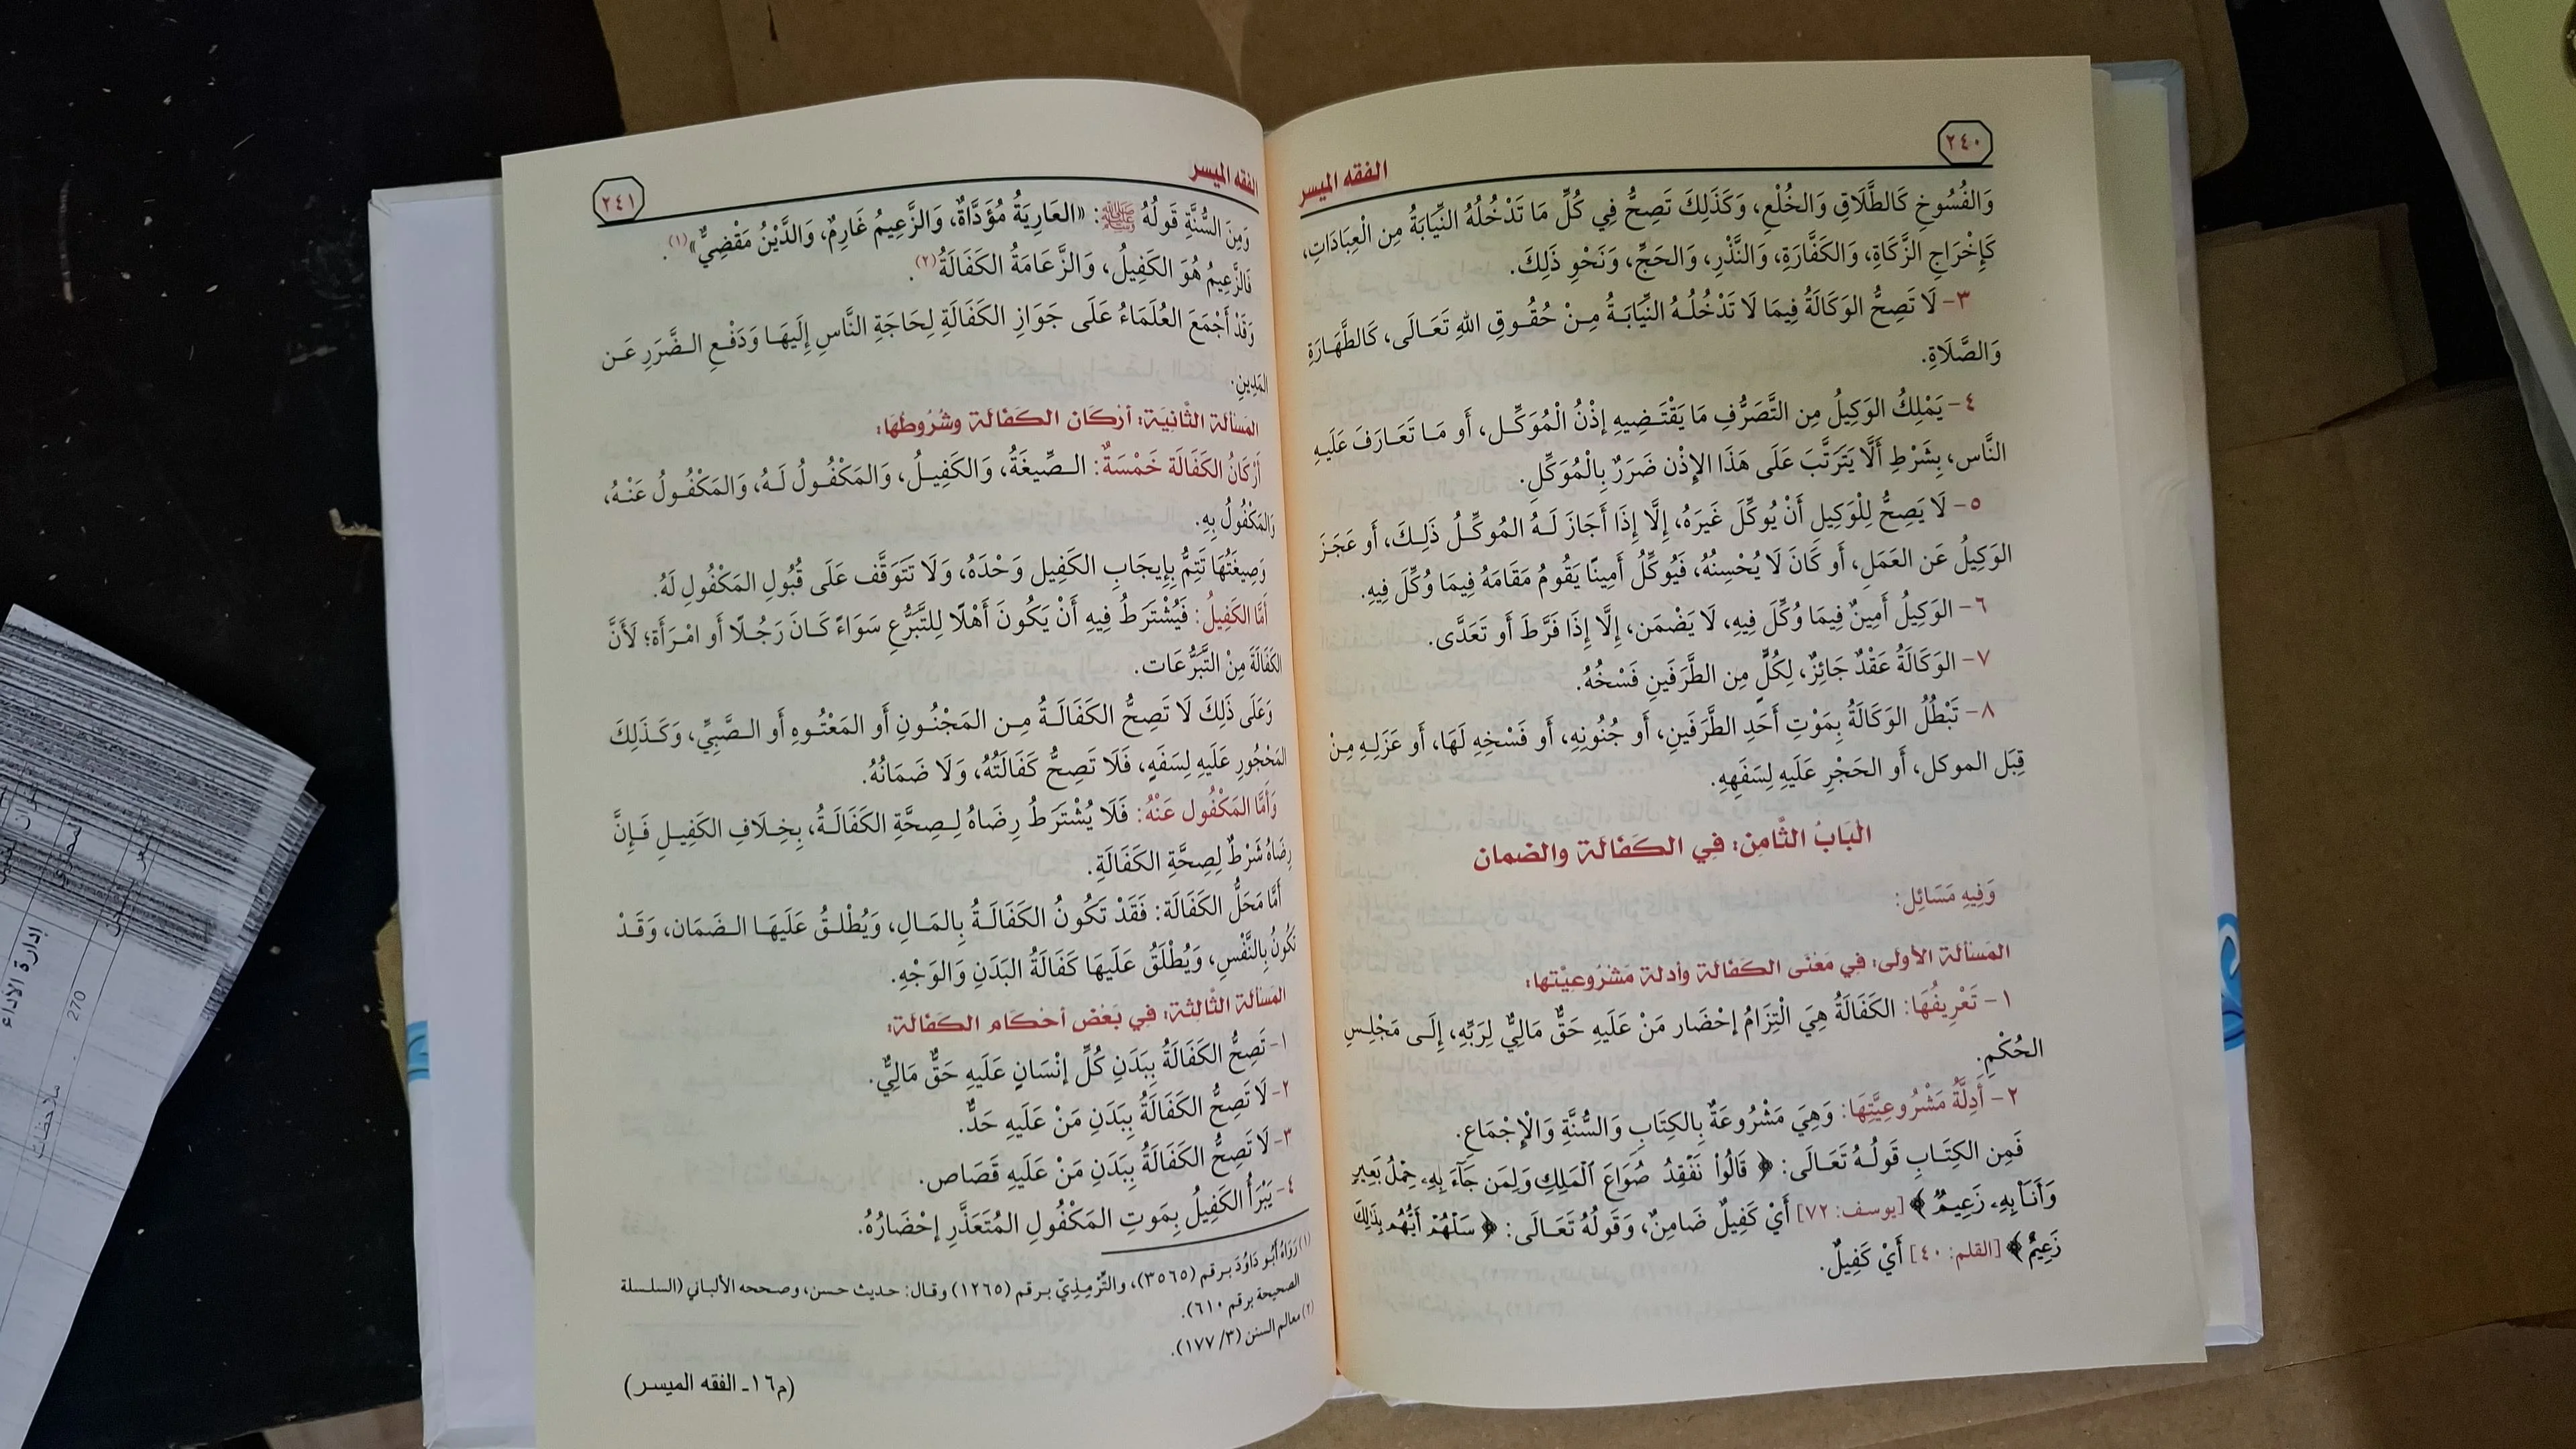 ٢٤٠
الفقه الميسر
وَالفُسُوخِ كَالطَّلَاقِ وَالخُلْعِ، وَكَذَلِكَ تَصِحُّ فِي كُلِّ مَا تَدْخُلُهُ النِّيَابَةُ مِن الْعِبَادَاتِ،
كَإِخْرَاجِ الزَّكَاةِ، وَالكَفَّارَةِ، وَالنَّذْرِ، وَالحَجِّ، وَنَحْوِ ذَلِكَ.
٣- لَا تَصِحُّ الوَكَالَةُ فِيمَا لَا تَدْخُلُهُ النِّيَابَةُ مِنْ حُقُوقِ اللهِ تَعَالَى، كَالطَّهَارَةِ
وَالصَّلَاةِ.
٤- يَمْلِكُ الوَكِيلُ مِن التَّصَرُّفِ مَا يَقْتَضِيهِ إذْنُ الْمُوَكِّل، أَو مَا تَعَارَفَ عَلَيهِ
النَّاس، بِشَرْطِ أَلَّا يَتَرَتَّبَ عَلَى هَذَا الإِذْن ضَرَرٌ بِالْمُوَكِّلِ.
٥- لَا يَصِحُّ لِلْوَكِيلِ أَنْ يُوكِّلَ غَيرَهُ، إِلَّا إِذَا أَجَازَ لَهُ المُوكِّلُ ذَلِكَ، أَو عَجَزَ
الوَكِيلُ عَن العَمَلِ، أَو كَانَ لَا يُحْسِنُهُ، فَيُوكِّلُ أَمِينًا يَقُومُ مَقَامَهُ فِيمَا وُكِّلَ فِيهِ.
٦- الوَكِيلُ أَمِينٌ فِيمَا وُكِّلَ فِيهِ، لَا يَضْمَن، إِلَّا إِذَا فَرَّطَ أَو تَعَدَّى.
٧- الوَكَالَةُ عَقْدٌ جَائِزٌ، لِكُلٍّ مِن الطَّرَفَينِ فَسْخُهُ.
٨- تَبْطُلُ الوَكَالَةُ بِمَوْتِ أَحَدِ الطَّرَفَينِ، أَو جُنُونِهِ، أَو فَسْخِهِ لَهَا، أَو عَزَلِهِ مِنْ
قِبَل الموكل، أَو الحَجْرِ عَلَيهِ لِسَفَهِهِ.
الْبَابُ الثَّامِن: فِي الكَفَالَة والضمان
وَفِيهِ مَسَائِل:
المَسْألة الأولى: في مَعْنَى الكَفَالَة وأدلة مَشْرُوعِيَّتها:
١- تَعْرِيفُهَا: الكَفَالَةُ هِيَ الْتِزَامُ إحْضَار مَنْ عَلَيهِ حَقٌّ مَالِيٌّ لِرَبِّهِ، إِلَى مَجْلِسِ
الحُكْمِ.
٢- أَدِلَّةُ مَشْرُوعِيَّتِهَا: وَهِيَ مَشْرُوعَةٌ بِالكِتَابِ وَالسُّنَّةِ وَالْإِجْمَاعِ.
فَمِن الكِتَابِ قَولُهُ تَعَالَى: ﴿ قَالُوا۟ نَفْقِدُ صُوَاعَ ٱلْمَلِكِ وَلِمَن جَآءَ بِهِۦ حِمْلُ بَعِيرٍ
وَأَنَا۠ بِهِۦ زَعِيمٌ ﴾ [يوسف: ٧٢] أَيْ كَفِيلٌ ضَامِنٌ، وَقَولُهُ تَعَالَى: ﴿ سَلْهُمْ أَيُّهُم بِذَٰلِكَ
زَعِيمٌ ﴾ [القلم: ٤٠] أَيْ كَفِيلٌ.
الفقه الميسر
٢٤١
وَمِنَ السُّنَّةِ قَولُهُ ﷺ: «العَارِيَةُ مُؤَدَّاةٌ، وَالزَّعِيمُ غَارِمٌ، وَالدَّيْنُ مَقْضِيٌّ»(١).
فَالزَّعِيمُ هُوَ الكَفِيلُ، وَالزَّعَامَةُ الكَفَالَةُ(٢).
وَقَدْ أَجْمَعَ العُلَمَاءُ عَلَى جَوَازِ الكَفَالَةِ لِحَاجَةِ النَّاسِ إِلَيهَا وَدَفْعِ الضَّرَرِ عَن
المَدِينِ.
المَسْألة الثَّانِيَة: أزكَان الكَفَالَة وشُرُوطُهَا:
أَرْكَانُ الكَفَالَة خَمْسَةٌ: الصِّيغَةُ، وَالكَفِيلُ، وَالمَكْفُولُ لَهُ، وَالمَكْفُولُ عَنْهُ،
وَالمَكْفُولُ بِهِ.
وَصِيغَتُهَا تَتِمُّ بِإِيجَابِ الكَفِيل وَحْدَهُ، وَلَا تتَوَقَّف عَلَى قُبُولِ المَكْفُولِ لَهُ.
أَمَّا الكَفِيلُ: فَيُشْتَرَطُ فِيهِ أَنْ يَكُونَ أَهْلًا لِلتَّبَرُّعِ سَوَاءً كَانَ رَجُلًا أَو امْرَأَة؛ لَأَنَّ
الكَفَالَةَ مِنْ التَّبَرُّعَات.
وَعَلَى ذَلِكَ لَا تَصِحُّ الكَفَالَةُ مِن المَجْنُونِ أَو المَعْتُوهِ أَو الصَّبِيِّ، وَكَذَلِكَ
المَحْجُورِ عَلَيهِ لِسَفَهٍ، فَلَا تَصِحُّ كَفَالَتُهُ، وَلَا ضَمَانُهُ.
وَأَمَّا المَكْفُول عَنْهُ: فَلَا يُشْتَرَطُ رِضَاهُ لِصِحَّةِ الكَفَالَةُ، بِخِلَافِ الكَفِيلِ فَإِنَّ
رِضَاهُ شَرْطٌ لِصِحَّةِ الكَفَالَةِ.
أَمَّا مَحَلُّ الكَفَالَة: فَقَدْ تَكُونُ الكَفَالَةُ بِالمَالِ، وَيُطْلقُ عَلَيهَا الضَمَان، وَقَدْ
تَكُونُ بِالنَّفْسِ، وَيُطْلَقُ عَلَيهَا كَفَالَةُ البَدَنِ وَالوَجْهِ.
المَسْألة الثَّالثة: في بَعْض أحْكَام الكَفَالَة:
١- تَصِحُّ الكَفَالَةُ بِبَدَنِ كُلِّ إِنْسَانٍ عَلَيهِ حَقٌّ مَالِيٌّ.
٢- لَا تَصِحُّ الكَفَالَةُ بِبَدَنِ مَنْ عَلَيهِ حَدٌّ.
٣- لَا تَصِحُّ الكَفَالَةُ بِبَدَنِ مَنْ عَلَيهِ قَصَاص.
٤- يَبْرَأُ الكَفِيلُ بِمَوتِ المَكْفُولِ المُتَعَذَّرِ إحْضَارُهُ.
(١) رَوَاهُ أَبُو دَاوُدَ برقم (٣٥٦٥)، والتِّرْمِذِيّ برقم (١٢٦٥) وقال: حديث حسن، وصححه الألباني (السلسلة
الصحيحة برقم ٦١٠).
(٢) معالم السنن (٣/ ١٧٧).
(م١٦ـ الفقه الميسر)
إدارة الأداء
270
ملاحظات